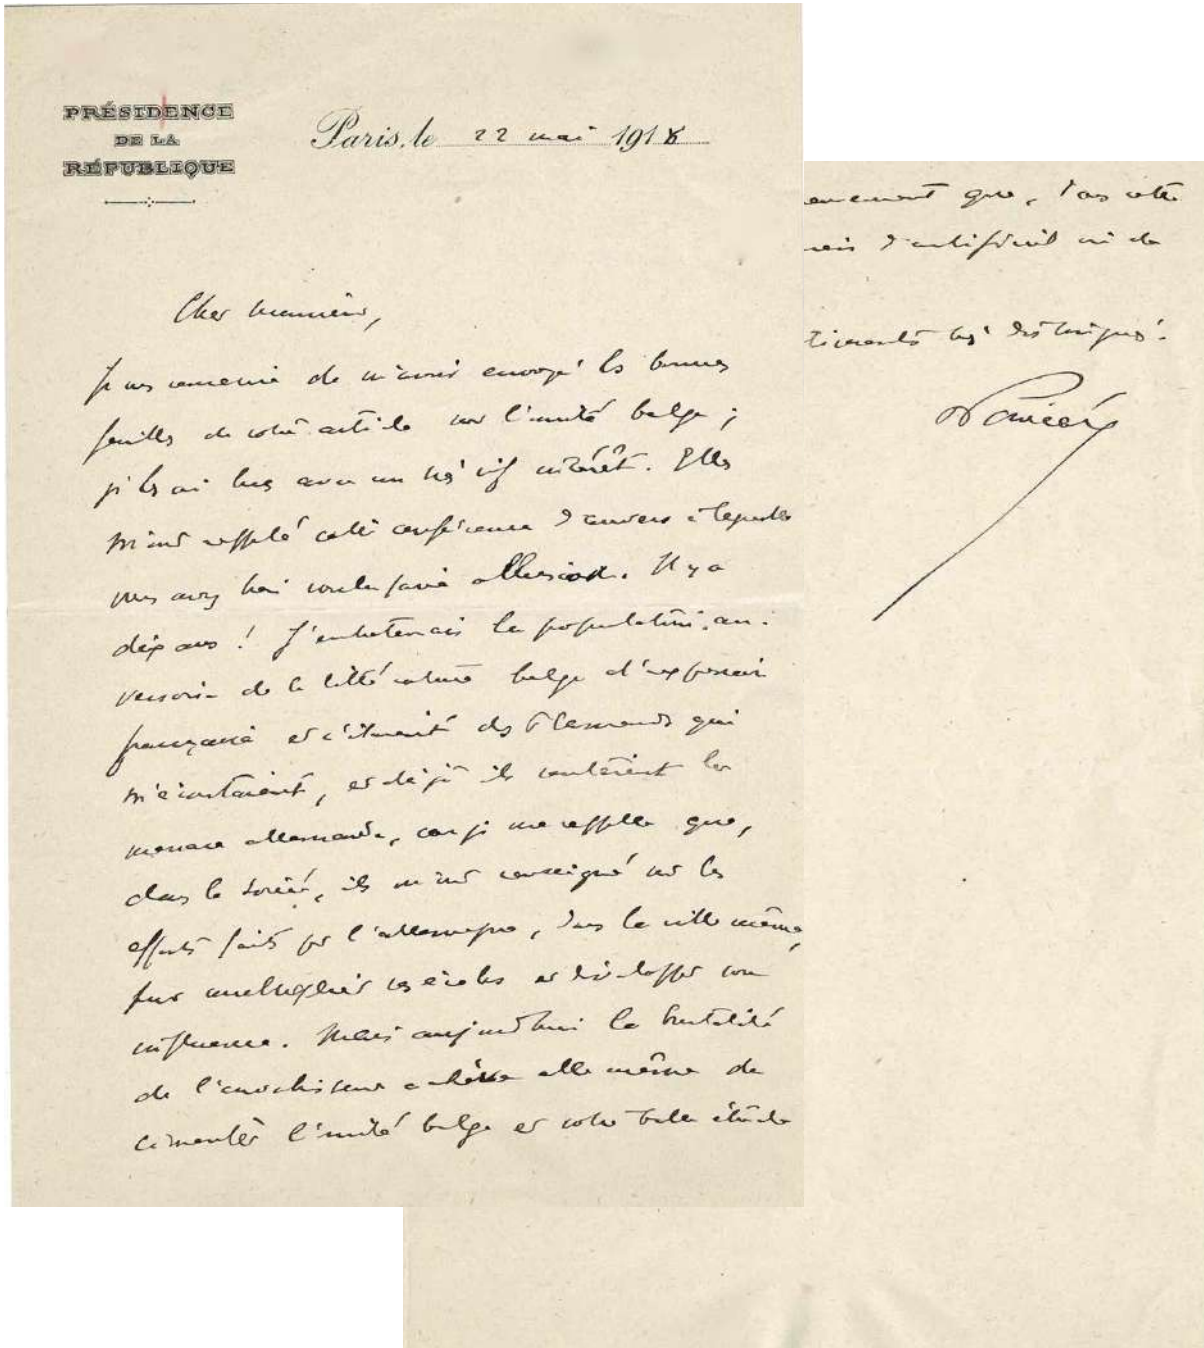 PRÉSIDENCE
DE LA
RÉPUBLIQUE
Paris, le 22 mai 1918
Cher monsieur,
Je vous remercie de m'avoir envoyé les bonnes
feuilles de votre article sur l'unité belge ;
je les ai lues avec un très vif intérêt. Elles
m'ont rappelé cette conférence d'anvers à laquelle
vous avez bien voulu faire allusion. Il y a
dix ans ! J'entretenais la population an-
versoise de la littérature belge d'expression
française et c'étaient des Flamands qui
m'écoutaient, et déjà ils sentaient la
menace allemande, car je me rappelle que,
dans la soirée, ils m'ont renseigné sur les
efforts faits par l'allemagne, dans la ville même,
pour multiplier ses écoles et développer son
influence. Mais aujourd'hui la brutalité
de l'envahisseur achève elle-même de
cimenter l'unité belge et votre belle étude
que, dans cette
d'artificiel ni de
timents très distingués.
RPoincaré